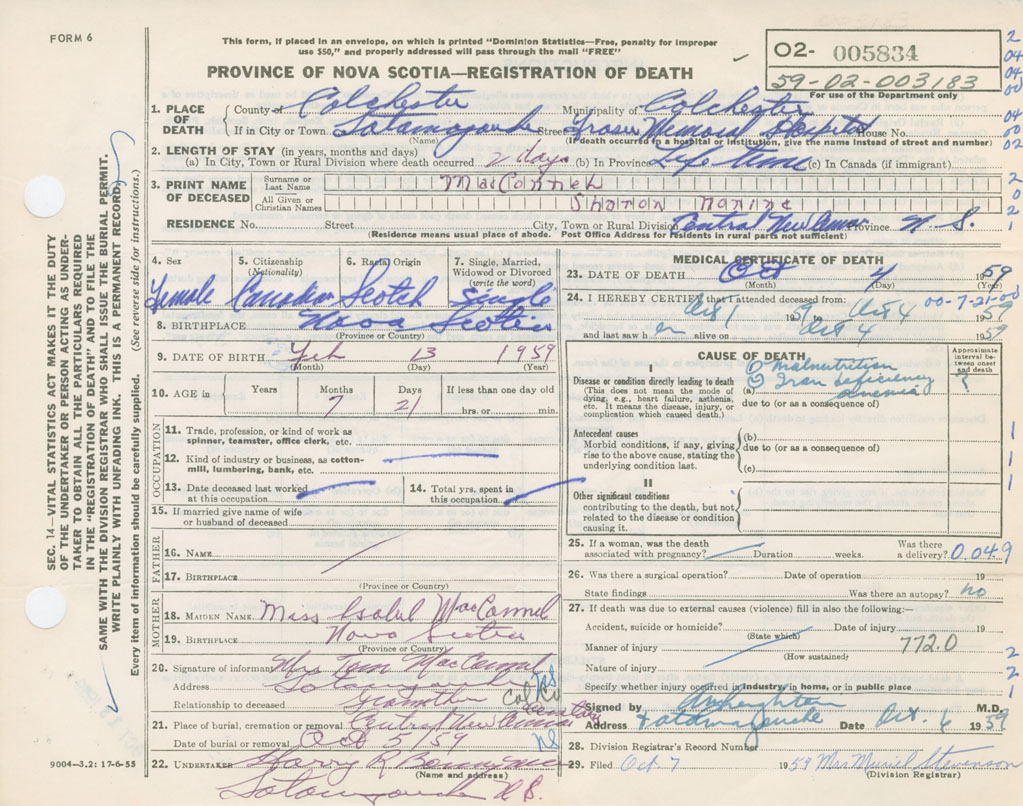 FORM 6
This form, if placed in an envelope, on which is printed "Dominion Statistics—Free, penalty for improper
use $50," and properly addressed will pass through the mail "FREE"
PROVINCE OF NOVA SCOTIA—REGISTRATION OF DEATH
02- 005834
59-02-003183
For use of the Department only
2
04
04
00
04
00
02
2
0
2
1
1. PLACE OF DEATH
County of Colchester Municipality of Colchester
If in City or Town Tatamagouche Street Fraser Memorial Hospital House No.
(Name) (If death occurred in a hospital or institution, give the name instead of street and number)
2. LENGTH OF STAY (in years, months and days)
(a) In City, Town or Rural Division where death occurred 2 days (b) In Province Life time (c) In Canada (if immigrant)
3. PRINT NAME OF DECEASED
Surname or Last Name MacConnell
All Given or Christian Names Sharon
RESIDENCE No. Street City, Town or Rural Division Central New Annan Province N. S.
(Residence means usual place of abode. Post Office Address for residents in rural parts not sufficient)
4. Sex 5. Citizenship (Nationality) 6. Racial Origin 7. Single, Married, Widowed or Divorced (write the word)
Female Canadian Scotch Single
8. BIRTHPLACE Nova Scotia
(Province or Country)
9. DATE OF BIRTH Feb 13 1959
(Month) (Day) (Year)
10. AGE in Years Months Days If less than one day old
7 21 hrs. or min.
OCCUPATION
11. Trade, profession, or kind of work as spinner, teamster, office clerk, etc.
12. Kind of industry or business, as cotton-mill, lumbering, bank, etc.
13. Date deceased last worked at this occupation 14. Total yrs. spent in this occupation
15. If married give name of wife or husband of deceased
FATHER
16. NAME
17. BIRTHPLACE
(Province or Country)
MOTHER
18. MAIDEN NAME Miss Isabel MacConnell
19. BIRTHPLACE Nova Scotia
(Province or Country)
20. Signature of informant Mrs Tom MacConnell
Address Tatamagouche NS
Relationship to deceased Col Co
21. Place of burial, cremation or removal Central New Annan Cemetery
Date of burial or removal Oct 5/59 NS
22. UNDERTAKER Harry R
(Name and address)
Tatamagouche N S.
MEDICAL CERTIFICATE OF DEATH
23. DATE OF DEATH Oct 4 1959
(Month) (Day) (Year)
24. I HEREBY CERTIFY that I attended deceased from: 00-7-21-00
Oct 1 1959 Oct 4 1959
and last saw h er alive on Oct 4 1959
CAUSE OF DEATH
Approximate interval between onset and death
I
Disease or condition directly leading to death
(This does not mean the mode of dying, e.g., heart failure, asthenia, etc. It means the disease, injury, or complication which caused death.)
(a) ① Malnutrition
② Iron deficiency anemia
?
due to (or as a consequence of)
Antecedent causes
Morbid conditions, if any, giving rise to the above cause, stating the underlying condition last.
(b)
due to (or as a consequence of)
(c)
II
Other significant conditions
contributing to the death, but not related to the disease or condition causing it.
1
1
1
25. If a woman, was the death associated with pregnancy? Duration weeks. Was there a delivery? 0.049
26. Was there a surgical operation? Date of operation 19
State findings Was there an autopsy? no
27. If death was due to external causes (violence) fill in also the following:—
Accident, suicide or homicide? Date of injury 19
(State which)
Manner of injury 772.0
(How sustained)
Nature of injury
Specify whether injury occurred in industry, in home, or in public place
2
2
1
Signed by M.D.
Address Tatamagouche Date Oct. 6 1959
28. Division Registrar's Record Number
29. Filed Oct 7 1959 Mrs Muriel Stevenson
(Division Registrar)
9004—3.2: 17-6-55
SEC. 14—VITAL STATISTICS ACT MAKES IT THE DUTY
OF THE UNDERTAKER OR PERSON ACTING AS UNDER-
TAKER TO OBTAIN ALL THE PARTICULARS REQUIRED
IN THE "REGISTRATION OF DEATH" AND TO FILE THE
SAME WITH THE DIVISION REGISTRAR WHO SHALL ISSUE THE BURIAL PERMIT.
WRITE PLAINLY WITH UNFADING INK. THIS IS A PERMANENT RECORD.
Every item of information should be carefully supplied. (See reverse side for instructions.)